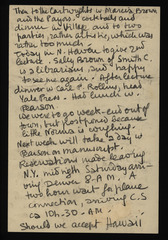 Then to the Cartwrights w Marcia Brown
and the Cains. Cocktails and
dinner and to two
parties, rather athletic, which was
rather too much.
Today in N. Haven to give 2nd
lecture. Sally Brown of Smith C.
a librarian, and happy
to see me again. After lecture
dinner w Cale Rollins, head
Yale Press. Had lunch w
Pearson.
We were to go week-end out of
town but postponed because
Ella Norma is coughing.
Next week will take 3 days w
Pearson on manuscript.
Reservations made leaving
N.Y. midnight Saturday arriving
Denver 8 A.M. A
two hour wait for plane
connection, arriving C.S.
ca 10h.30 A.M.
Should we accept Hawaii